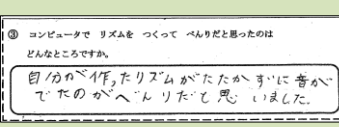 ③ コンピュータで リズムを つくって べんりだと思ったのは
どんなところですか。
自分が作ったリズムがたたかずに音が
でたのがべんりだと思いました。